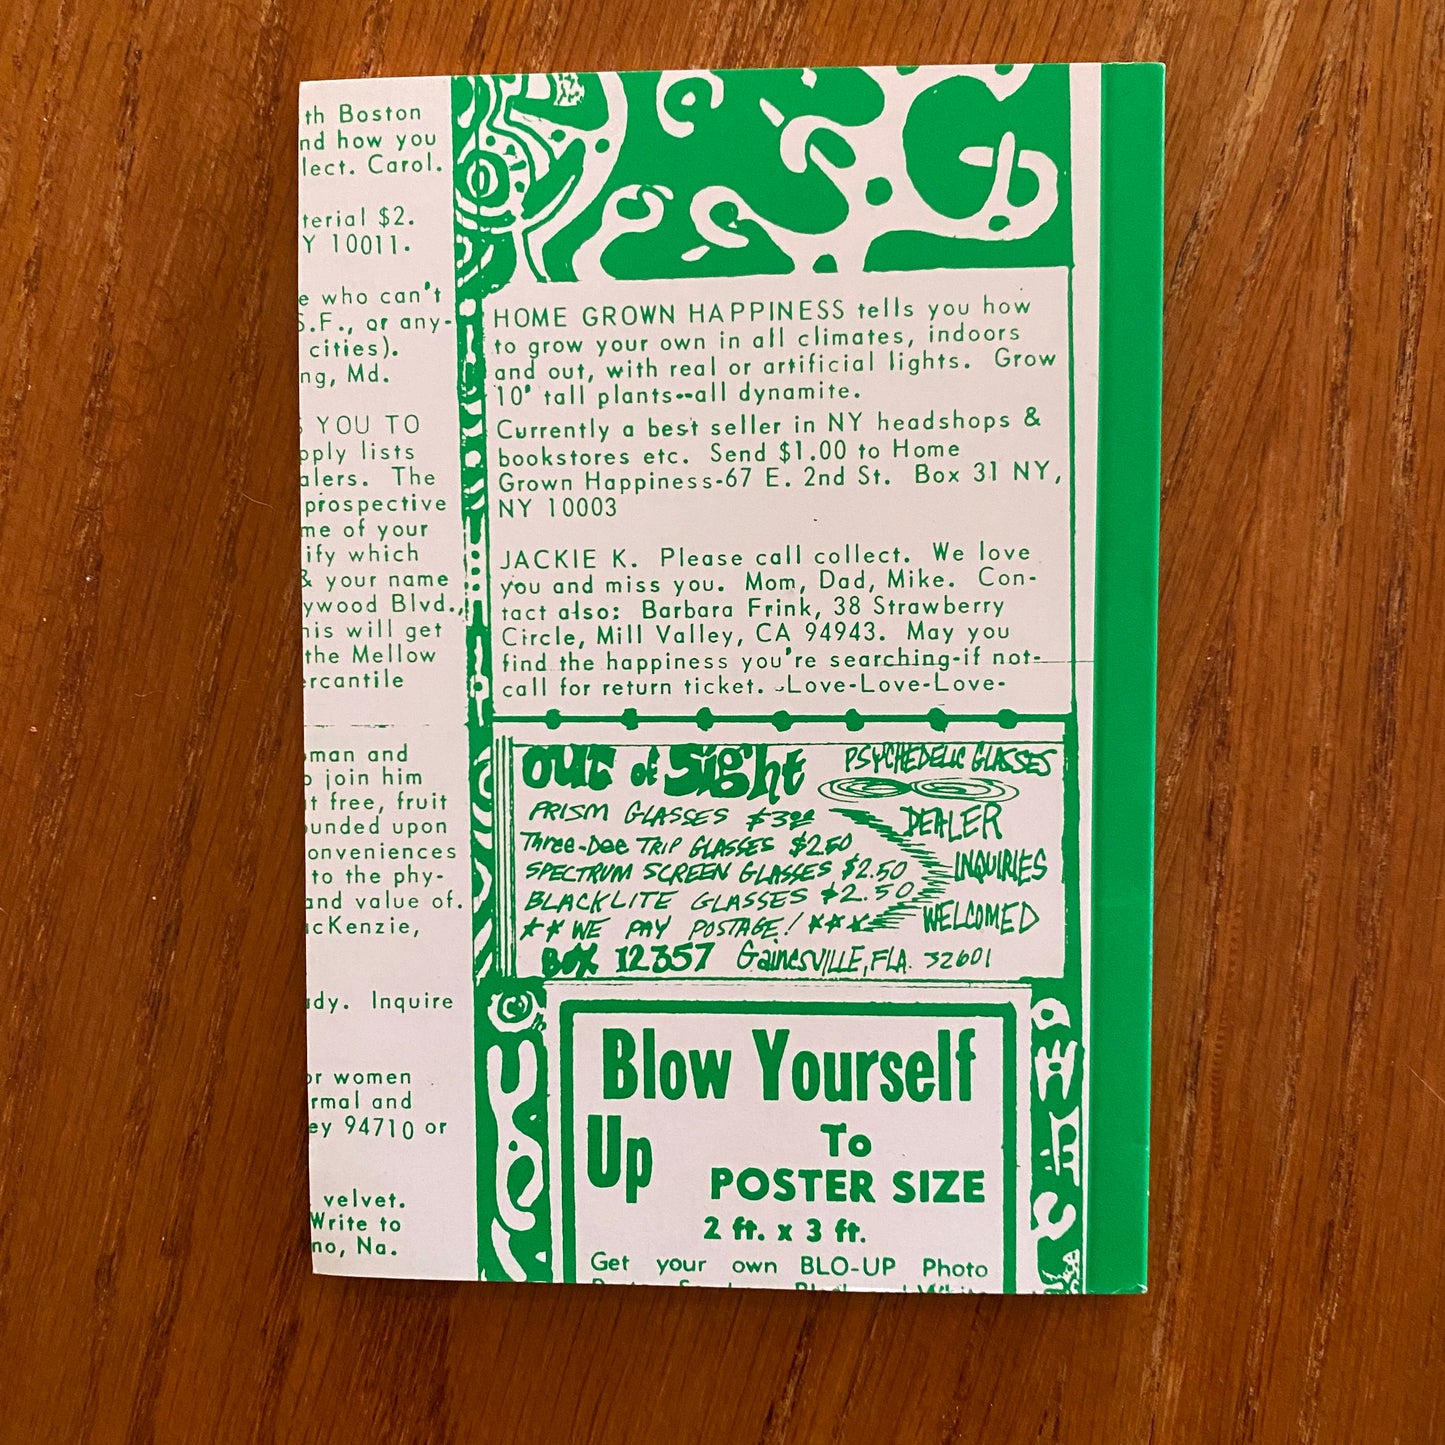 th Boston
nd how you
lect. Carol.
terial $2.
Y 10011.
e who can't
S.F., or any-
cities).
ng, Md.
S YOU TO
pply lists
alers. The
prospective
me of your
ify which
& your name
ywood Blvd.,
his will get
the Mellow
ercantile
man and
o join him
t free, fruit
ounded upon
onveniences
to the phy-
and value of.
acKenzie,
dy. Inquire
or women
rmal and
ey 94710 or
velvet.
Write to
no, Na.
HOME GROWN HAPPINESS tells you how
to grow your own in all climates, indoors
and out, with real or artificial lights. Grow
10' tall plants--all dynamite.
Currently a best seller in NY headshops &
bookstores etc. Send $1.00 to Home
Grown Happiness-67 E. 2nd St. Box 31 NY,
NY 10003
JACKIE K. Please call collect. We love
you and miss you. Mom, Dad, Mike. Con-
tact also: Barbara Frink, 38 Strawberry
Circle, Mill Valley, CA 94943. May you
find the happiness you're searching-if not-
call for return ticket. -Love-Love-Love-
out of Sight
PSYCHEDELIC GLASSES
PRISM GLASSES $3.00
Three-Dee TRIP GLASSES $2.50
SPECTRUM SCREEN GLASSES $2.50
BLACKLITE GLASSES $2.50
** WE PAY POSTAGE! ***
DEALER
INQUIRIES
WELCOMED
BOX 12357 GainesVILLE, FLA. 32601
Blow Yourself
Up To
POSTER SIZE
2 ft. x 3 ft.
Get your own BLO-UP Photo